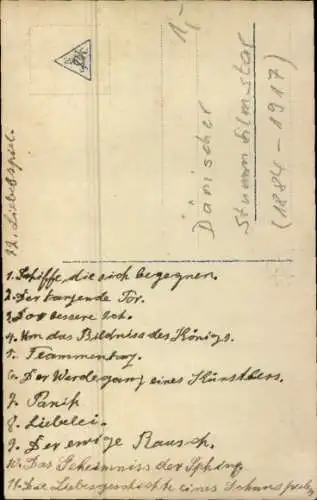 1.-
Dänischer
Stummfilmstar
(1884-1917)
12. Liebesspiel.
1. Schiffe, die sich begegnen.
2. Der tanzende Tor.
3. Das bessere Ich.
4. Um das Bildniss des Königs.
5.
6. Der Werdegang eines Künstlers.
7. Panik
8. Liebelei.
9. Der ewige Rausch.
10. Das Geheimniss der Sphinx
11. Die Liebesgeschichte eines